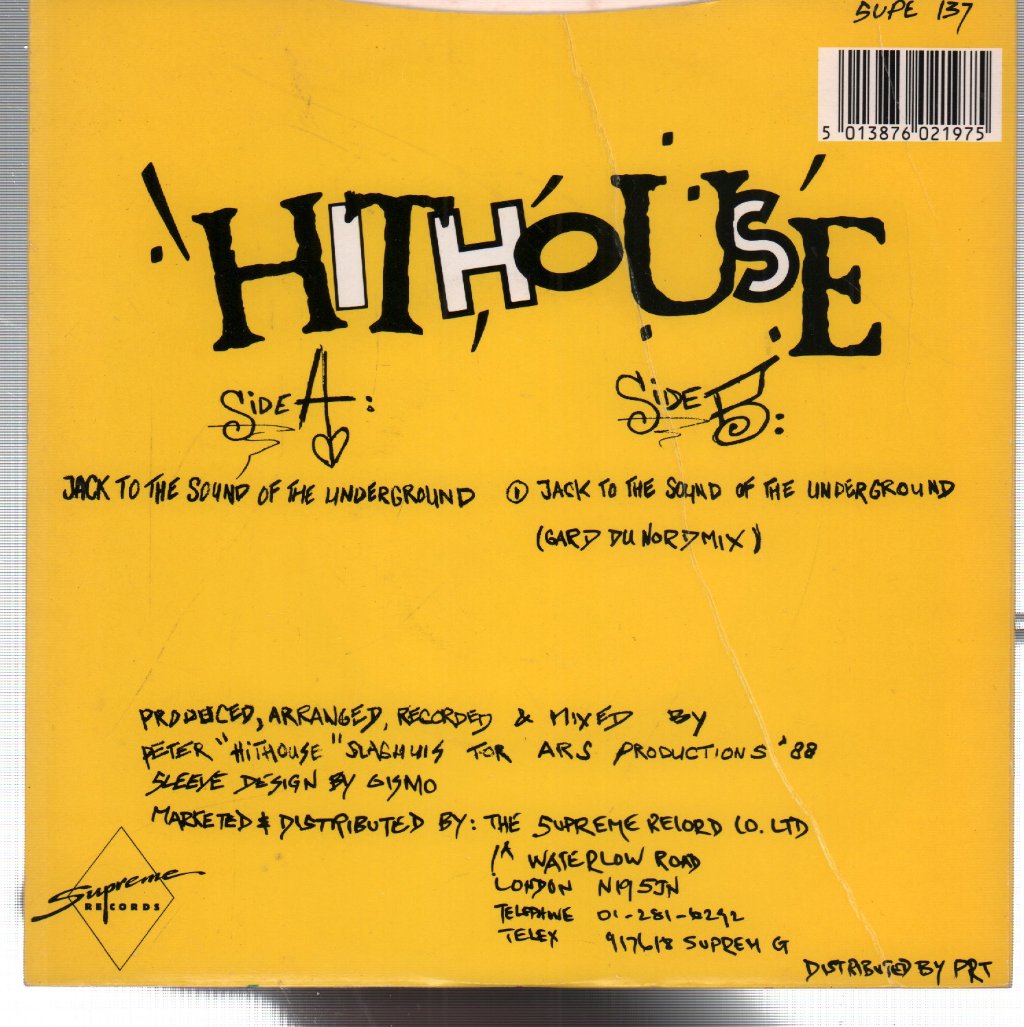 SUPE 137
5 013876 021975
HITHOUSE
SiDE A:
SiDE B:
JACK TO THE SOUND OF THE UNDERGROUND
① JACK TO THE SOUND OF THE UNDERGROUND
(GARD DU NORD MIX)
PRODUCED, ARRANGED, RECORDED & MIXED BY
PETER "HITHOUSE" SLAGHUIS FOR ARS PRODUCTIONS '88
SLEEVE DESIGN BY GISMO
MARKETED & DISTRIBUTED BY: THE SUPREME RECORD CO. LTD
1A WATERLOW ROAD
LONDON N19 5JN
TELEPHONE 01-281-6292
TELEX 917618 SUPREM G
Supreme
RECORDS
DISTRIBUTED BY PRT